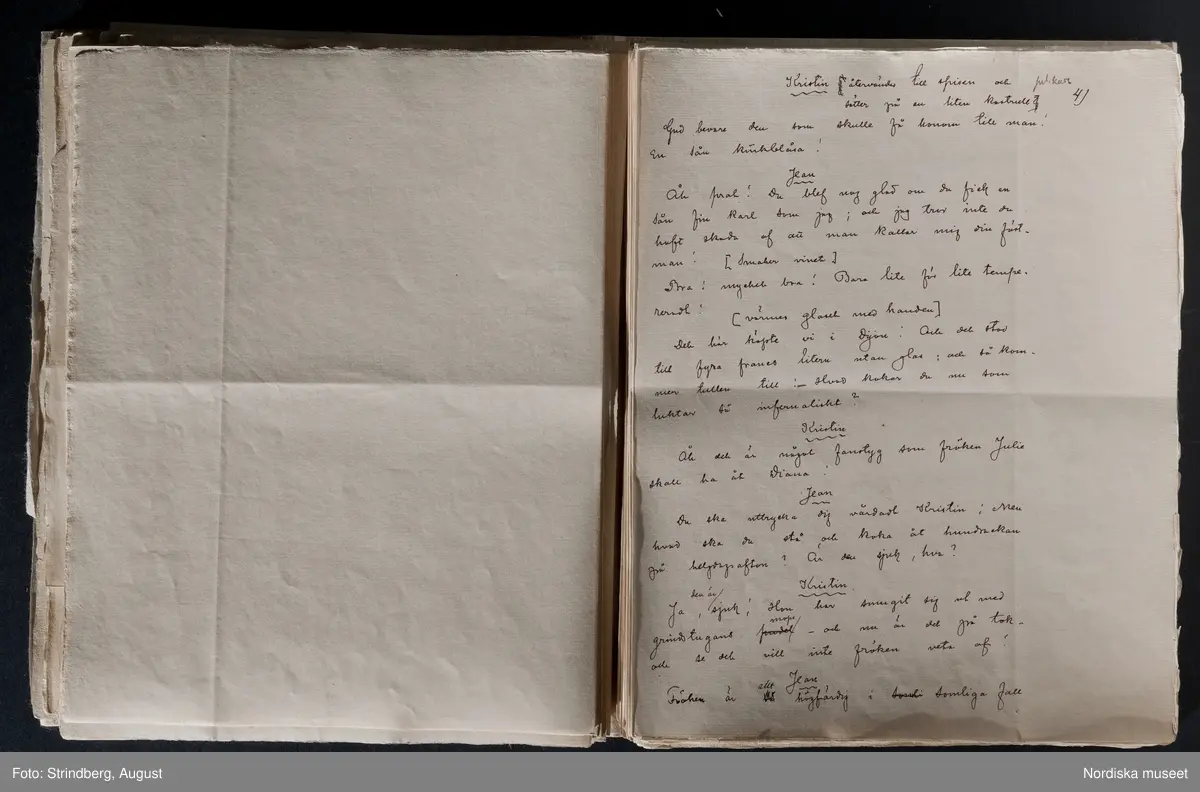 Kristin [återvänder till spisen och pukar
sätter på en liten kastrull]
4)
Gud bevare den som skulle få honom till man!
En sån kruk blåsa!
Jean
Åh prat! Du blef nog glad om du fick en
sån fin karl som jag; och jag tror inte du
haft skada af att man kallar mig din fäst-
man! [Smakar vinet]
Bra! mycket bra! Bara lite för lite tempe-
reradt! [värmer glaset med handen]
Det här köpte vi i Dijon! Och det stod
till fyra francs litern utan glas; och så kom-
mer tullen till! – Hvad kokar du nu som
luktar så infernaliskt?
Kristin
Åh det är något fanstyg som fröken Julie
skall ha åt Diana!
Jean
Du ska uttrycka dig vårdadt Kristin; Men
hvad ska du stå och koka åt hundrackan
på helgdagsafton? Är den sjuk, hva?
Kristin
Ja, den är sjuk! Hon har smugit sig ut med
grindstugans mops – och nu är det på tok –
och se det vill inte fröken veta af!
Jean
Fröken är allt högfärdig i somliga fall
Foto: Strindberg, August
Nordiska museet